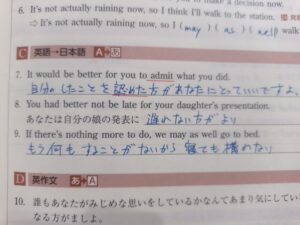 u to make a decision now.
6. It's not actually raining now, so I think I'll walk to the station.
⇒ It's not actually raining now, so I ( may ) ( as ) ( well ) walk
C 英語→日本語 A→あ
7. It would be better for you to admit what you did.
自分のしたことを認めた方があなたにとっていいですよ。
8. You had better not be late for your daughter's presentation.
あなたは自分の娘の発表に 遅れない方がよい
9. If there's nothing more to do, we may as well go to bed.
もう何もすることがないから寝ても構わない
D 英作文 あ→A
10. 誰もあなたがみじめな思いをしているかなんてあまり気にしてい
なる方がましよ。